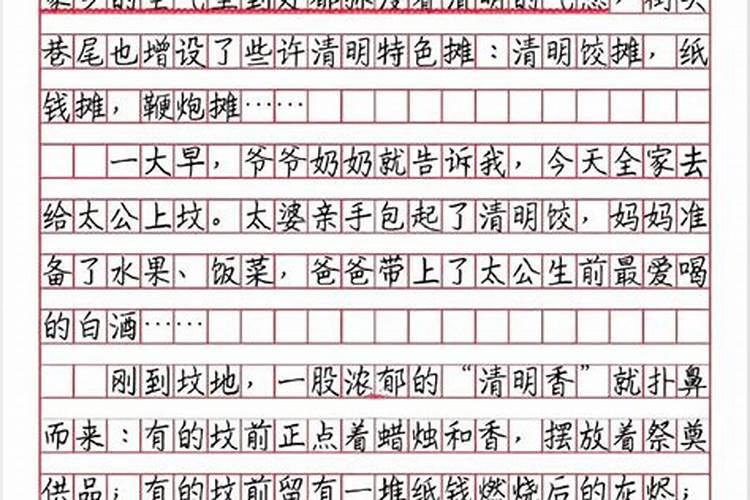 巷尾也增设了些许清明特色摊：清明饺摊，纸
钱摊，鞭炮摊……
一大早，爷爷奶奶就告诉我，今天全家去
给太公上坟。太婆亲手包起了清明饺，妈妈准
备了水果、饭菜，爸爸带上了太公生前最爱喝
的白酒……
刚到坟地，一股浓郁的“清明香”就扑鼻
而来：有的坟前正点着蜡烛和香，摆放着祭奠
供品；有的坟前留有一堆纸钱燃烧后的灰烬；